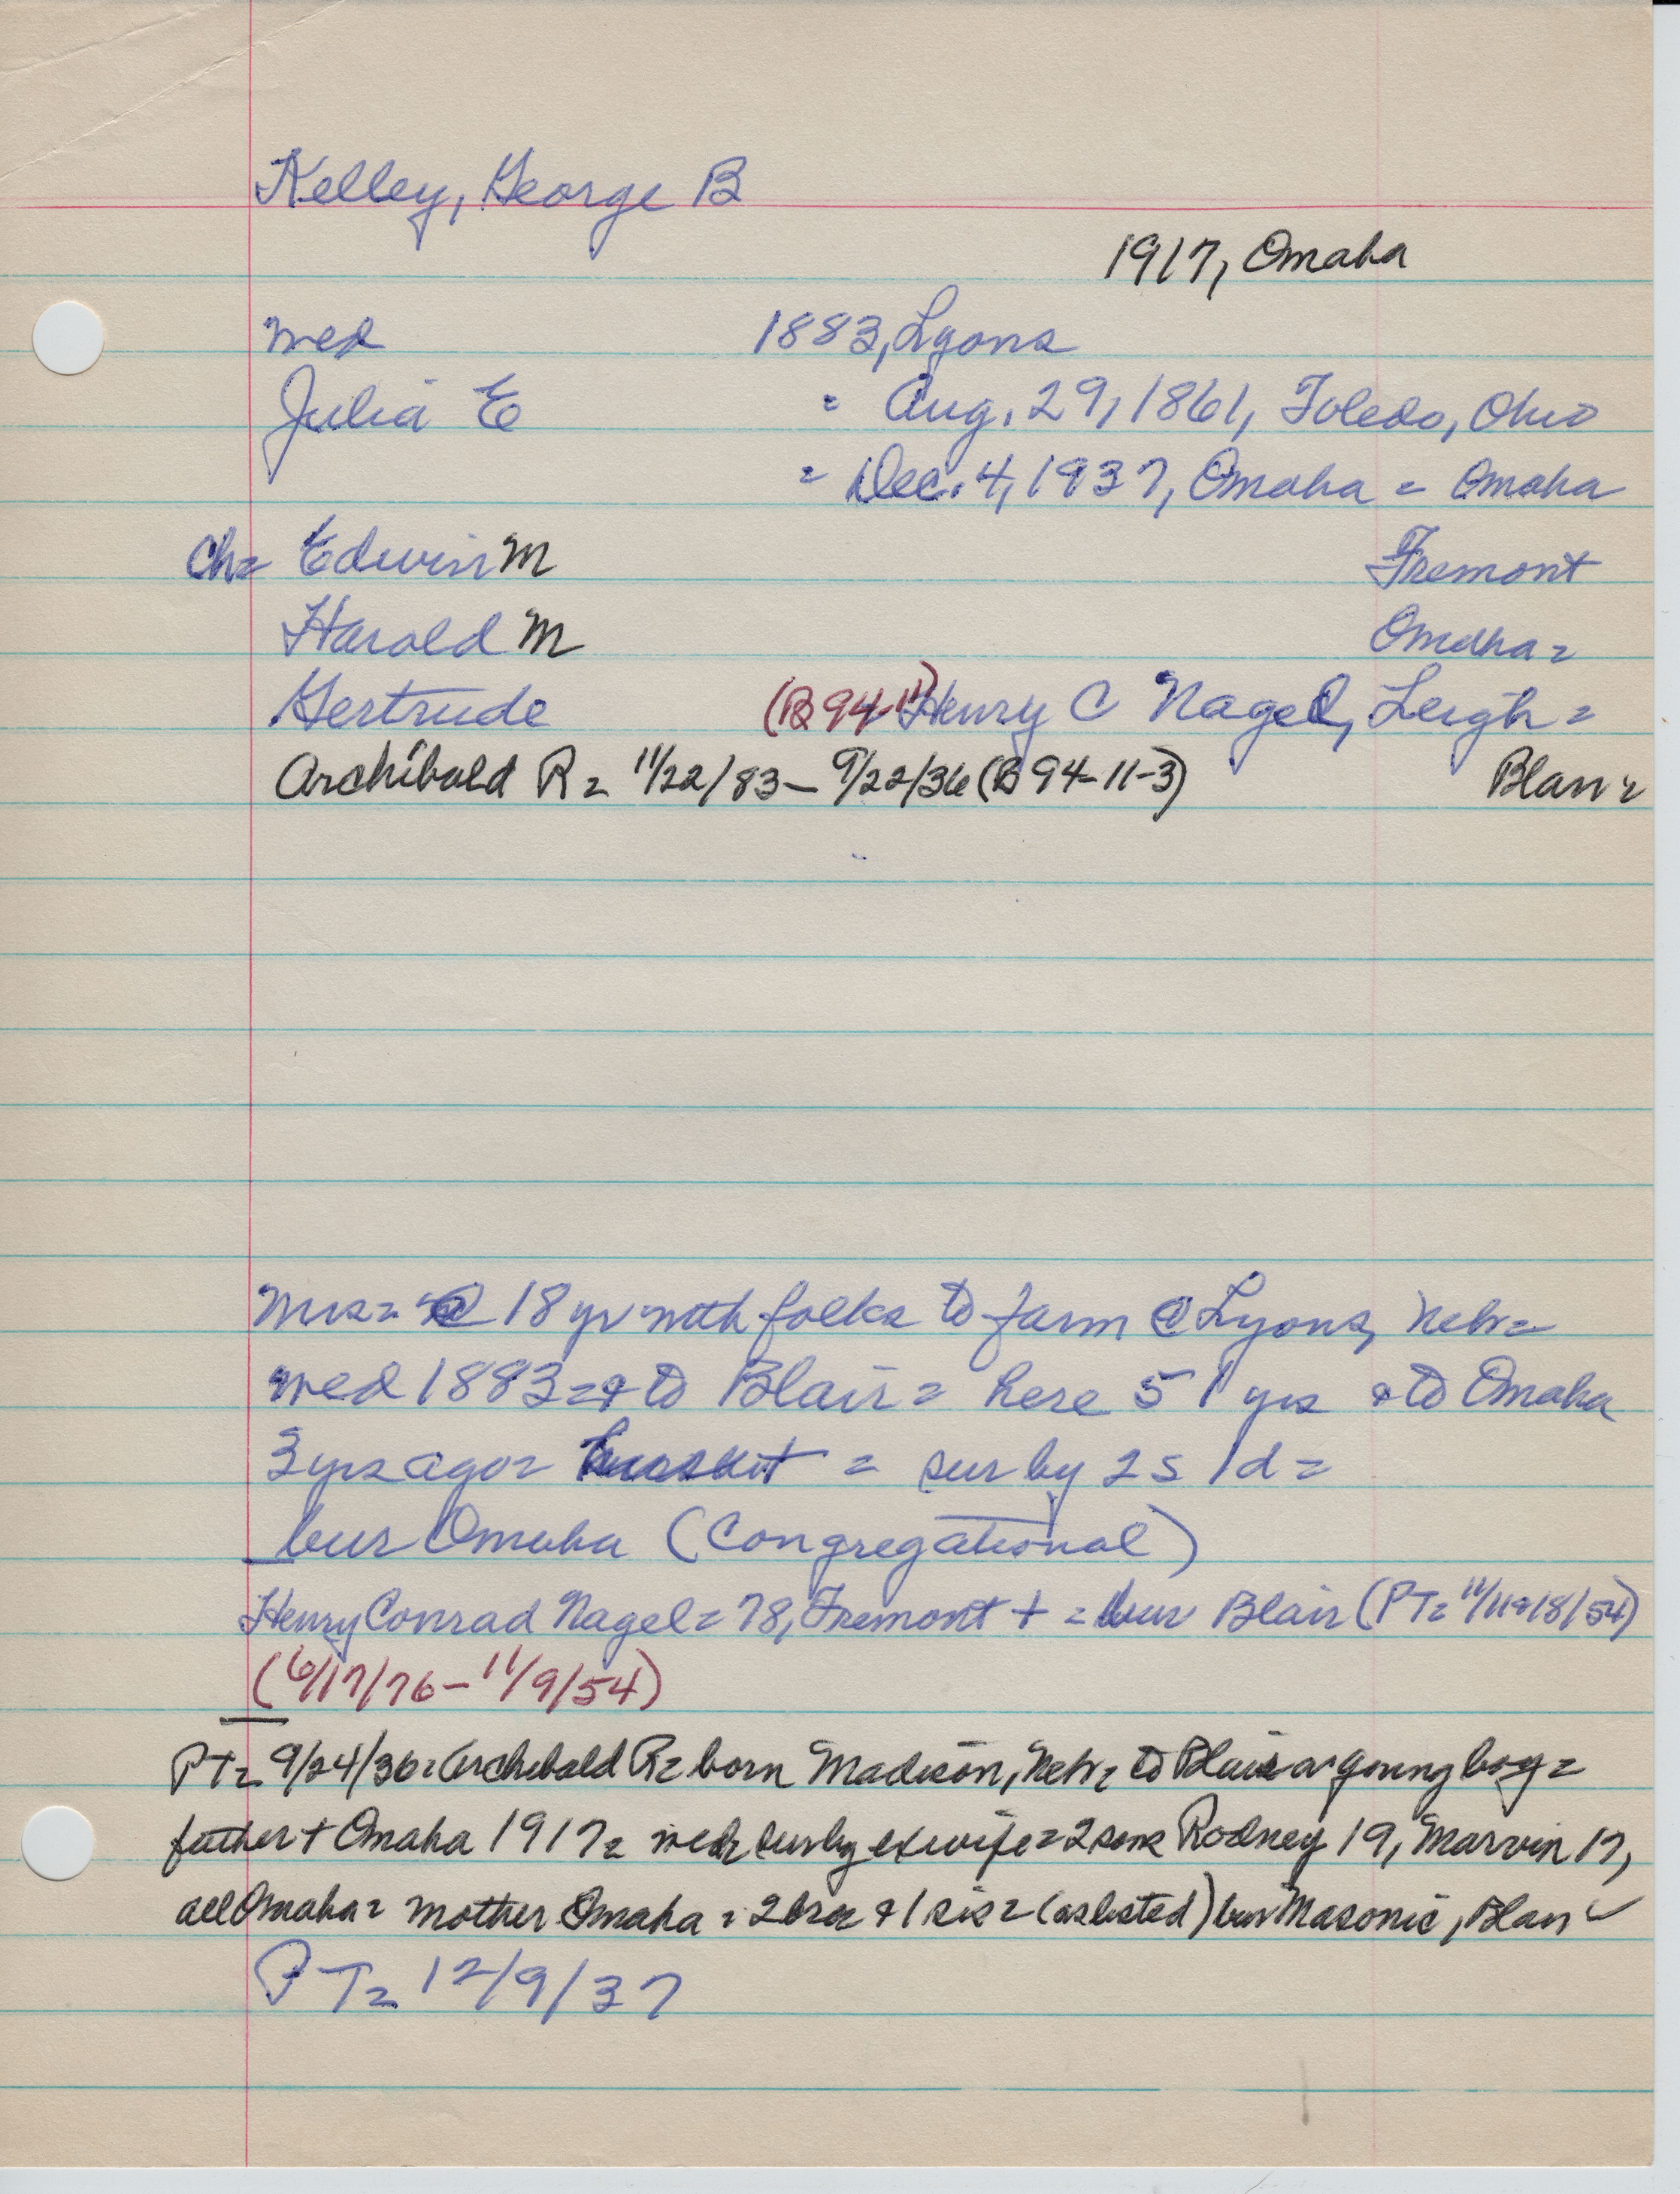 Kelley, George B
1917, Omaha
wed 1883, Lyons
Julia E = Aug. 29, 1861, Toledo, Ohio
= Dec. 4, 1937, Omaha = Omaha
Ch= Edwin M Fremont
Harold M Omaha =
Gertrude (B 94-11) Henry C Nagel, Leigh =
Archibald R = 11/22/83 - 9/22/36 (B 94-11-3) Blair =
Mrs = @ 18 yr with folks to farm @ Lyons, Nebr =
wed 1883 = & to Blair = here 51 yrs & to Omaha
3 yrs ago = = sur by 2 s 1 d =
bur Omaha (Congregational)
Henry Conrad Nagel = 78, Fremont + = bur Blair (PT= 11/11&18/54)
(6/17/76 - 11/9/54)
PT= 9/24/36 = Archibald R = born Madison, Nebr = to Blair a young boy =
father + Omaha 1917 = wed = sur by exwife = 2 sons Rodney 19, Marvin 17,
all Omaha = mother Omaha = 2 bro & 1 sis = (as listed) bur Masonic, Blair
PT= 12/9/37